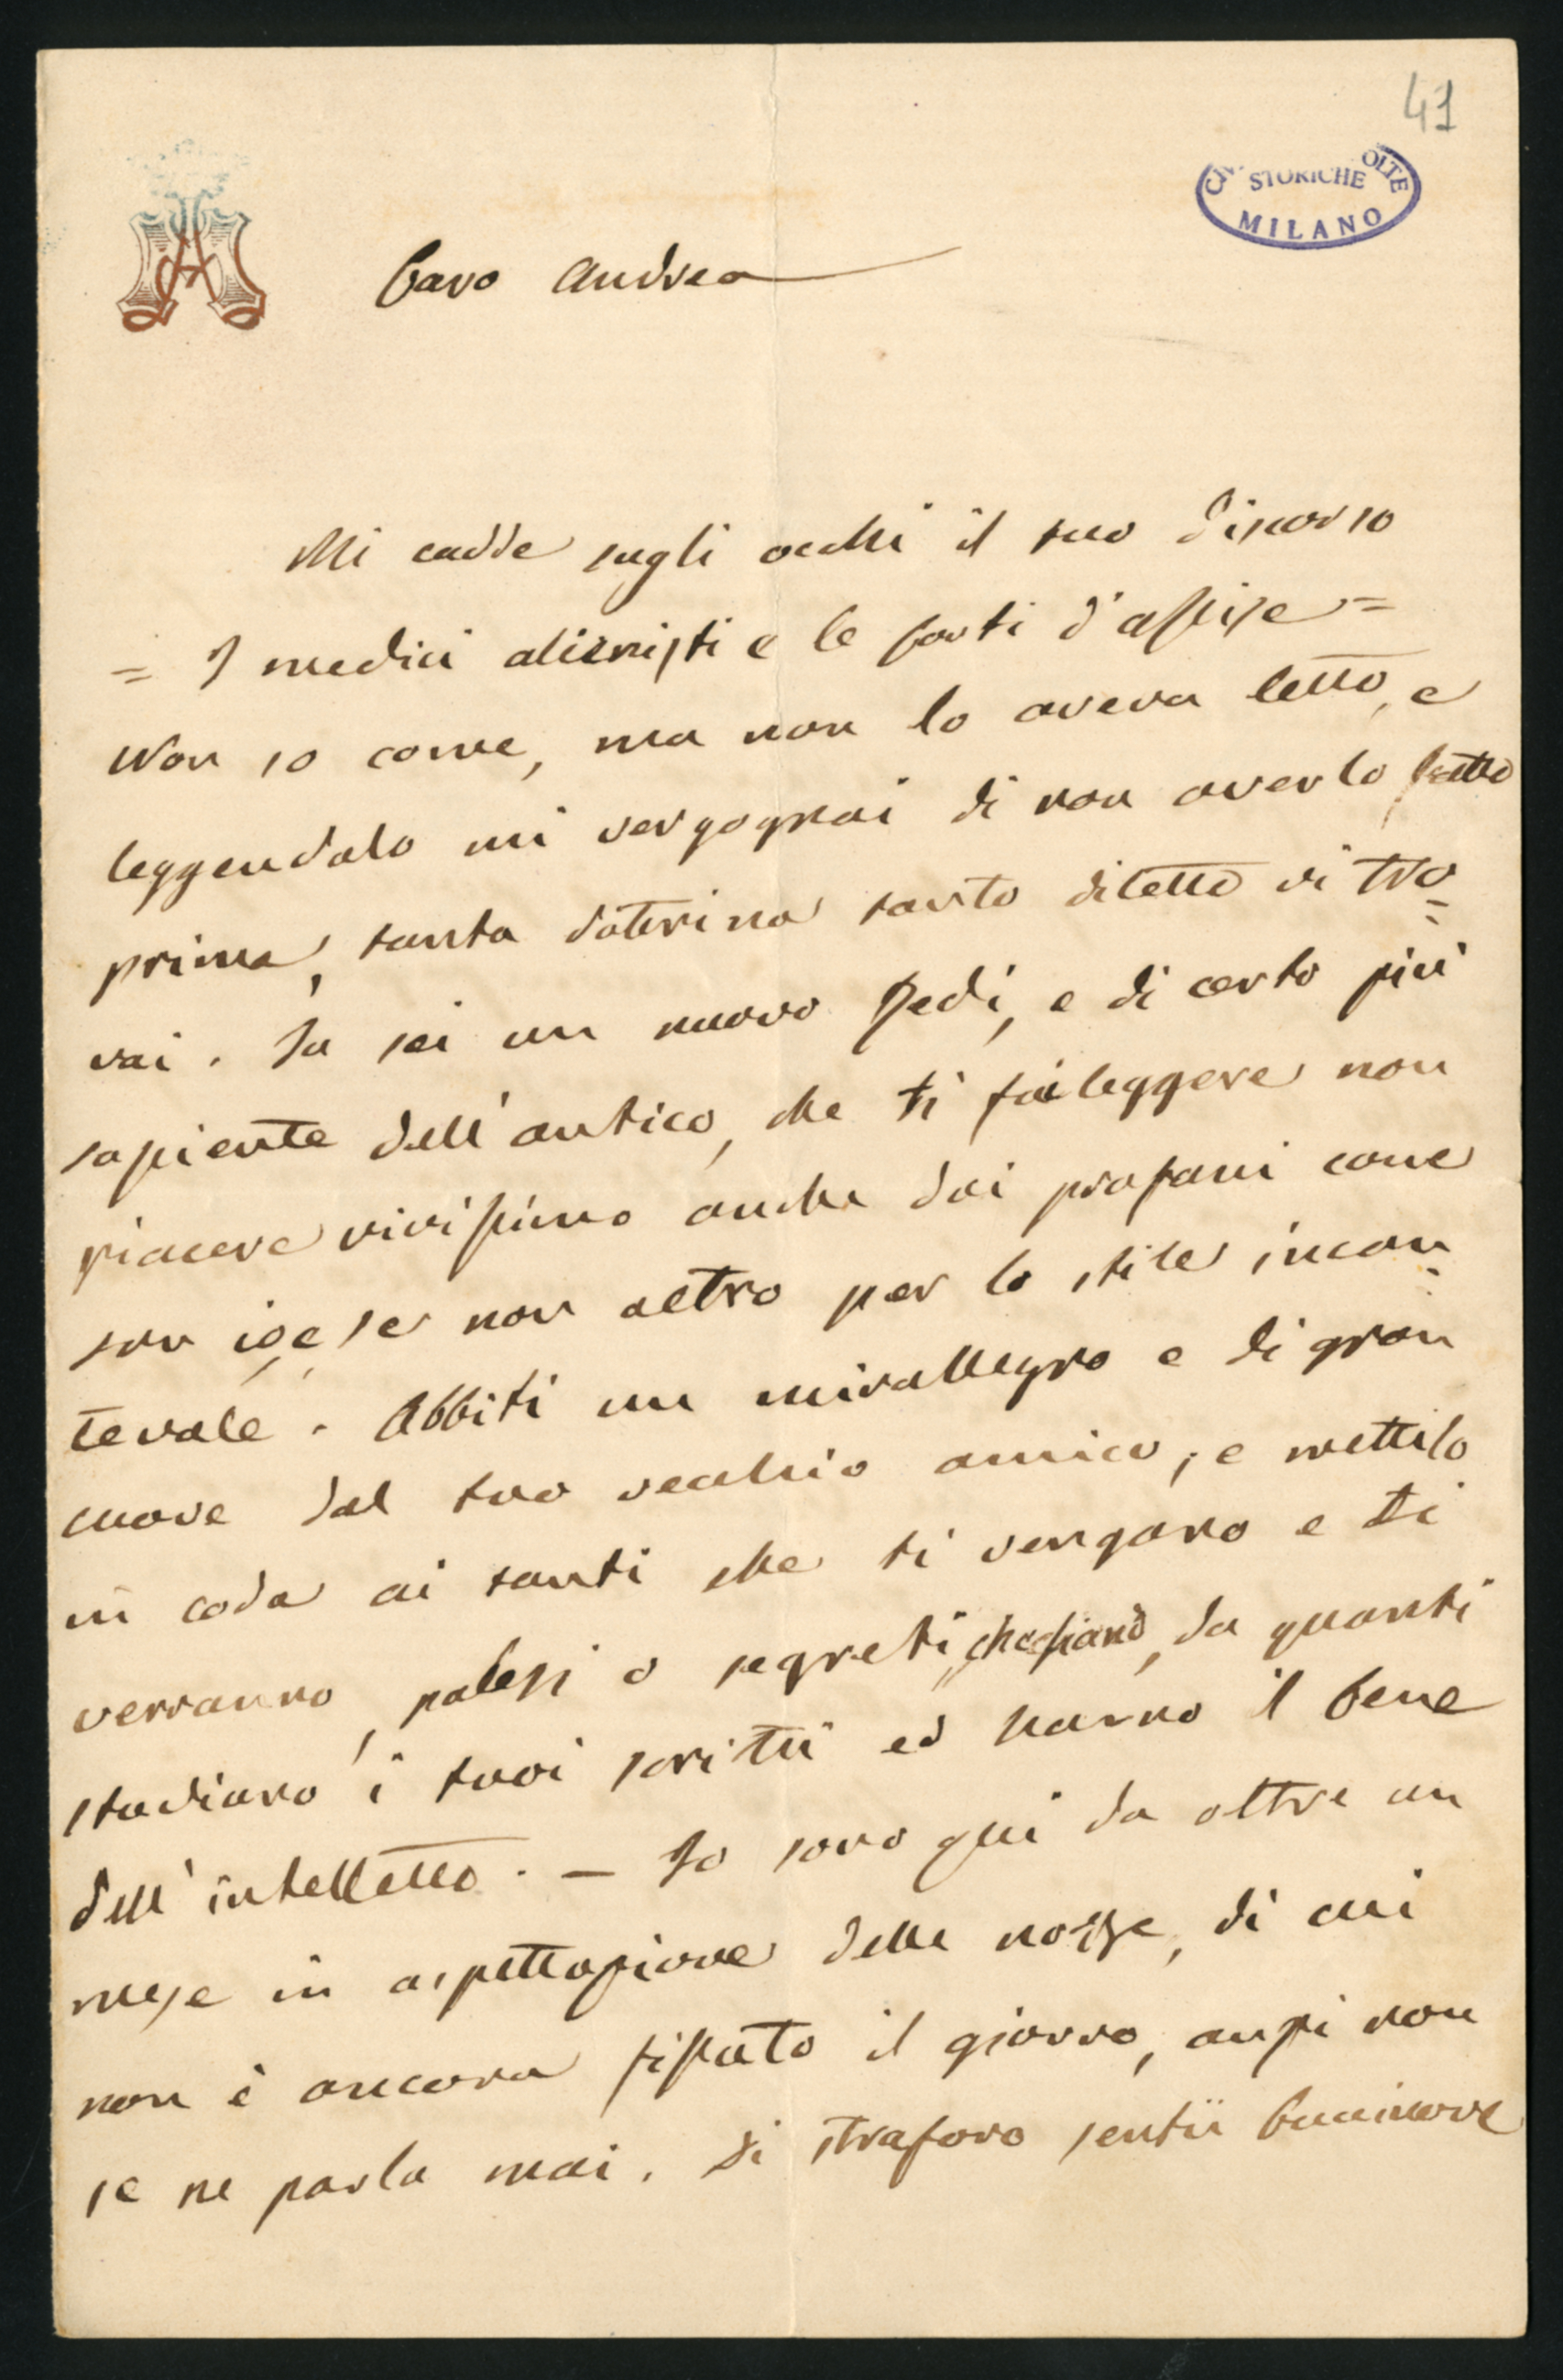 41
CIV OLTE
STORICHE
MILANO
A
Caro Andrea
Mi cadde sugli occhi il tuo discorso
= I medici alienisti e le Corti d'assise =
Non so come, ma non lo aveva letto, e
leggendolo mi vergognai di non averlo fatto
prima, tanta dottrina tanto diletto vi tro=
vai. Tu sei un nuovo Redi, e di certo più
sapiente dell'antico, che ti fai leggere non
piacere vivissimo anche dai profani come
son io, e se non altro per lo stile incan=
tevole. Abbiti un mirallegro e di gran
cuore dal tuo vecchio amico, e mettilo
in coda ai tanti che ti vengono e ti
verranno, palesi o segreti che siano, da quanti
studiano i tuoi scritti ed hanno il bene
dell'intelletto. — Io sono qui da oltre un
mese in aspettazione delle nozze, di cui
non è ancora fissato il giorno, anzi non
se ne parla mai. Di straforo sentii bucinare